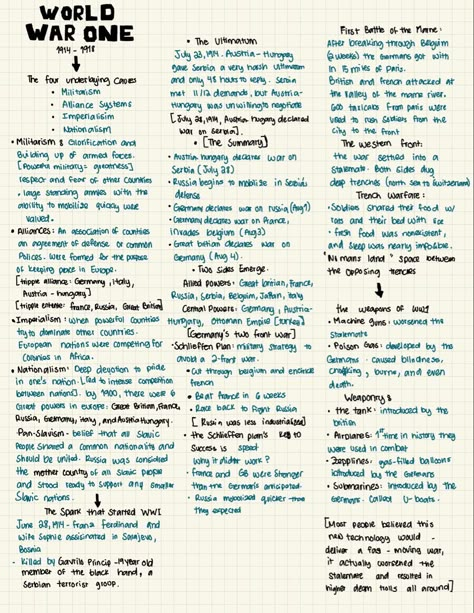 WORLD
WAR ONE
1914 - 1918
The four underlying Causes
• Militarism
• Alliance Systems
• Imperialisim
• Nationalism
• Militarism & Glorification and
Building up of armed forces.
[Powerful military = greatness]
respect and fear of other countries
. large standing armies with the
ability to mobilize quickly were
valued.
• Alliances: An association of countries
an agreement of defense or common
Polices. Were formed for the purpose
of keeping peace in Europe.
[tripple alliance: Germany, Italy,
Austria - hungary]
[tripple entente: france, Russia, Great Britian]
• Imperialism: when powerful countries
try to dominate other countries.
European nations were competing for
Colonies in Africa.
• Nationalism: Deep devotion to pride
in one's nation. [Led to intense competition
between nations]. by 1900, there were 6
Great powers in europe: Great Britian, France,
Russia, Germany, italy, and Austria Hungary.
Pan-Slavism - belief that all Slavic
People shared a common nationality and
Should be united. Russia was considered
the mother country of all Slavic people
and stood ready to support any smaller
Slavic nations.
The Spark that started WWI
June 28, 1914 - Franz Ferdinand and
wife Sophie assinated in Sarajevo,
Bosnia
- killed by Gavrilo Princip - 19 year old
member of the black hand, a
Serbian terrorist group.
• The Ultimatum
July 23, 1914. Austria - Hungary
gave Serbia a very harsh ultimatum
and only 48 hours to reply. Serbia
met 11/12 demands, but Austria-
Hungary was unwilling to negotiate
[July 28, 1914, Austria Hungary declared
war on Serbia].
[The Summary]
• Austria hungary declares war on
Serbia (July 28)
• Russia begins to mobilize in Serbia's
defense
• Germany declares war on russia (Aug 1)
• Germany declares war on France,
invades belgium (Aug 3)
• Great britian declares war on
Germany (Aug 4).
• Two sides Emerge.
Allied powers: Great britian, France,
Russia, Serbia, Belgium, Japan, Italy
Central Powers: Germany, Austria-
Hungary, Ottoman Empire [turkey]
[Germany's two front war]
• Schlieffen Plan: military strategy to
avoid a 2-front war.
• Cut through belgium and encircle
french
• Beat france in 6 weeks
• Race back to fight Russia
[Russia was less industrialized]
• the Schlieffen plan's key to
Success is speed
Why it didn't work?
• France and GB were stronger
than the Germans anticipated.
• Russia mobilized quicker than
they expected
First Battle of the Marne:
After breaking through Belgium
(2 weeks) the Germans got with
in 15 miles of Paris.
British and French attacked at
the valley of the marne river.
600 taxicabs from paris were
used to rush Soldiers from the
city to the front
The western front:
the war settled into a
Stalemate. Both sides dug
deep trenches (north sea to switzerland)
Trench warfare:
• Soldiers shared their food w/
rats and their bed with lice
• fresh food was nonexistent,
and sleep was nearly impossible.
"No mans land" space between
the opposing trenches
the weapons of WW1
• Machine guns: worsened the
Stalemate
• Poison Gas: developed by the
Germans - caused blindness,
choking, burns, and even
death.
Weaponry &
• the tank: introduced by the
british
• Airplanes: 1st time in history they
were used in combat
• Zepplines: gas-filled balloons
introduced by the Germans
• Submarines: introduced by the
Germans. Called U-boats.
[Most people believed this
new technology would
deliver a fast-moving war,
it actually worsened the
Stalemate and resulted in
higher death tolls all around]